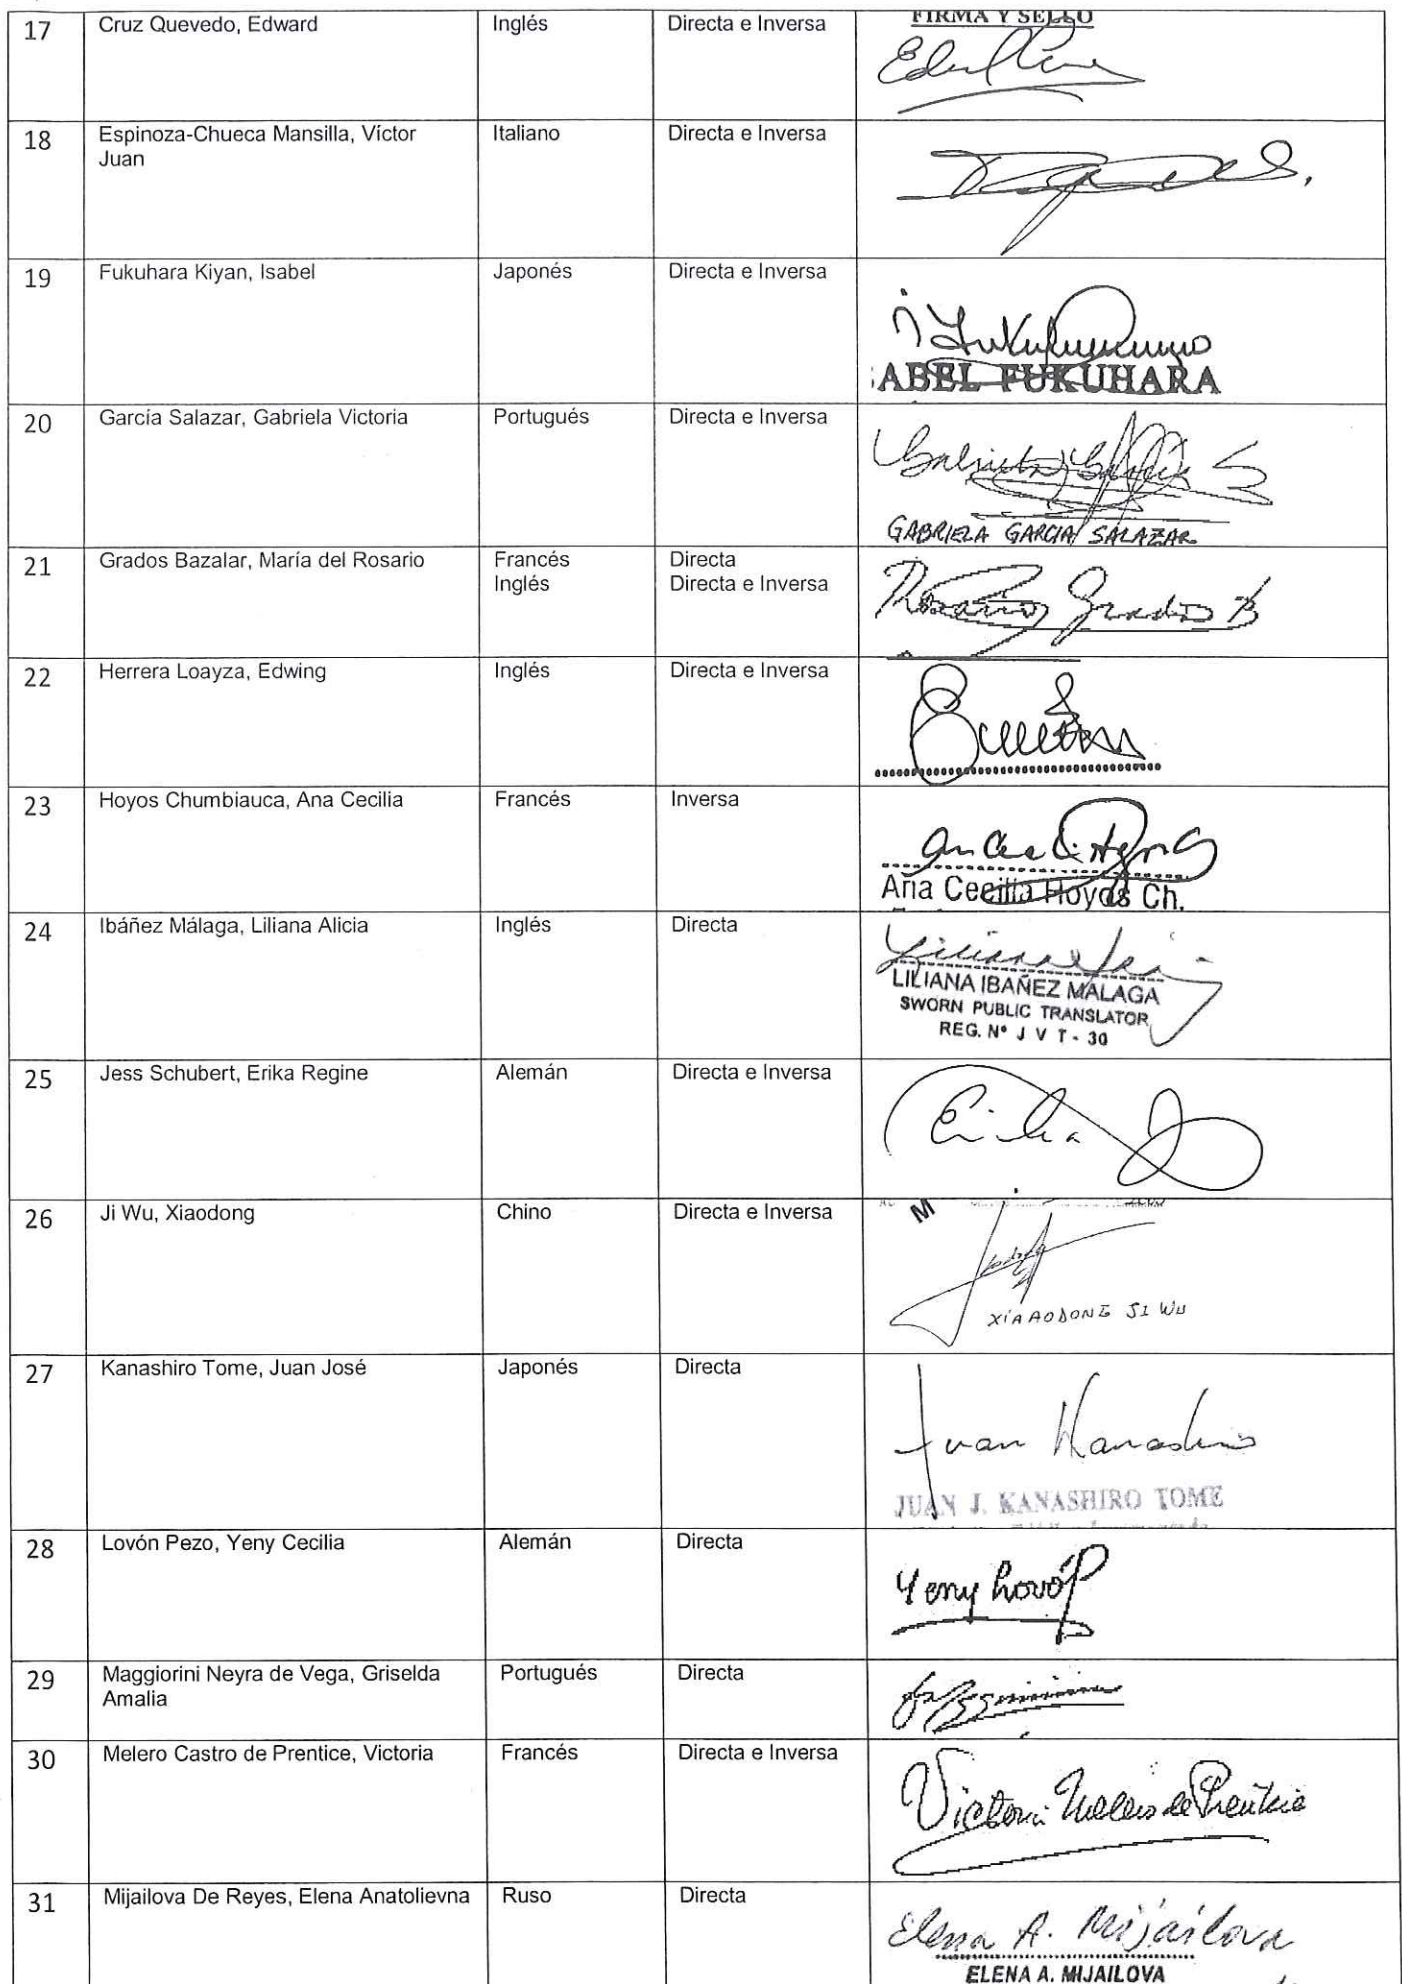 17 Cruz Quevedo, Edward Inglés Directa e Inversa FIRMA Y SELLO
18 Espinoza-Chueca Mansilla, Víctor Italiano Directa e Inversa
Juan
19 Fukuhara Kiyan, Isabel Japonés Directa e Inversa
ABEL FUKUHARA
20 García Salazar, Gabriela Victoria Portugués Directa e Inversa
GABRIELA GARCIA SALAZAR
21 Grados Bazalar, María del Rosario Francés Directa
Inglés Directa e Inversa
Rosario Grados B
22 Herrera Loayza, Edwing Inglés Directa e Inversa
23 Hoyos Chumbiauca, Ana Cecilia Francés Inversa
Ana Cecilia Hoyos Ch.
24 Ibáñez Málaga, Liliana Alicia Inglés Directa
LILIANA IBAÑEZ MALAGA
SWORN PUBLIC TRANSLATOR
REG. Nº J V T - 30
25 Jess Schubert, Erika Regine Alemán Directa e Inversa
26 Ji Wu, Xiaodong Chino Directa e Inversa
M
XIAAODONG JI WU
27 Kanashiro Tome, Juan José Japonés Directa
Juan Kanashiro
JUAN J. KANASHIRO TOME
28 Lovón Pezo, Yeny Cecilia Alemán Directa
Yeny Lovó P
29 Maggiorini Neyra de Vega, Griselda Portugués Directa
Amalia
30 Melero Castro de Prentice, Victoria Francés Directa e Inversa
Victoria Melero de Prentice
31 Mijailova De Reyes, Elena Anatolievna Ruso Directa
Elena A. Mijailova
ELENA A. MIJAILOVA